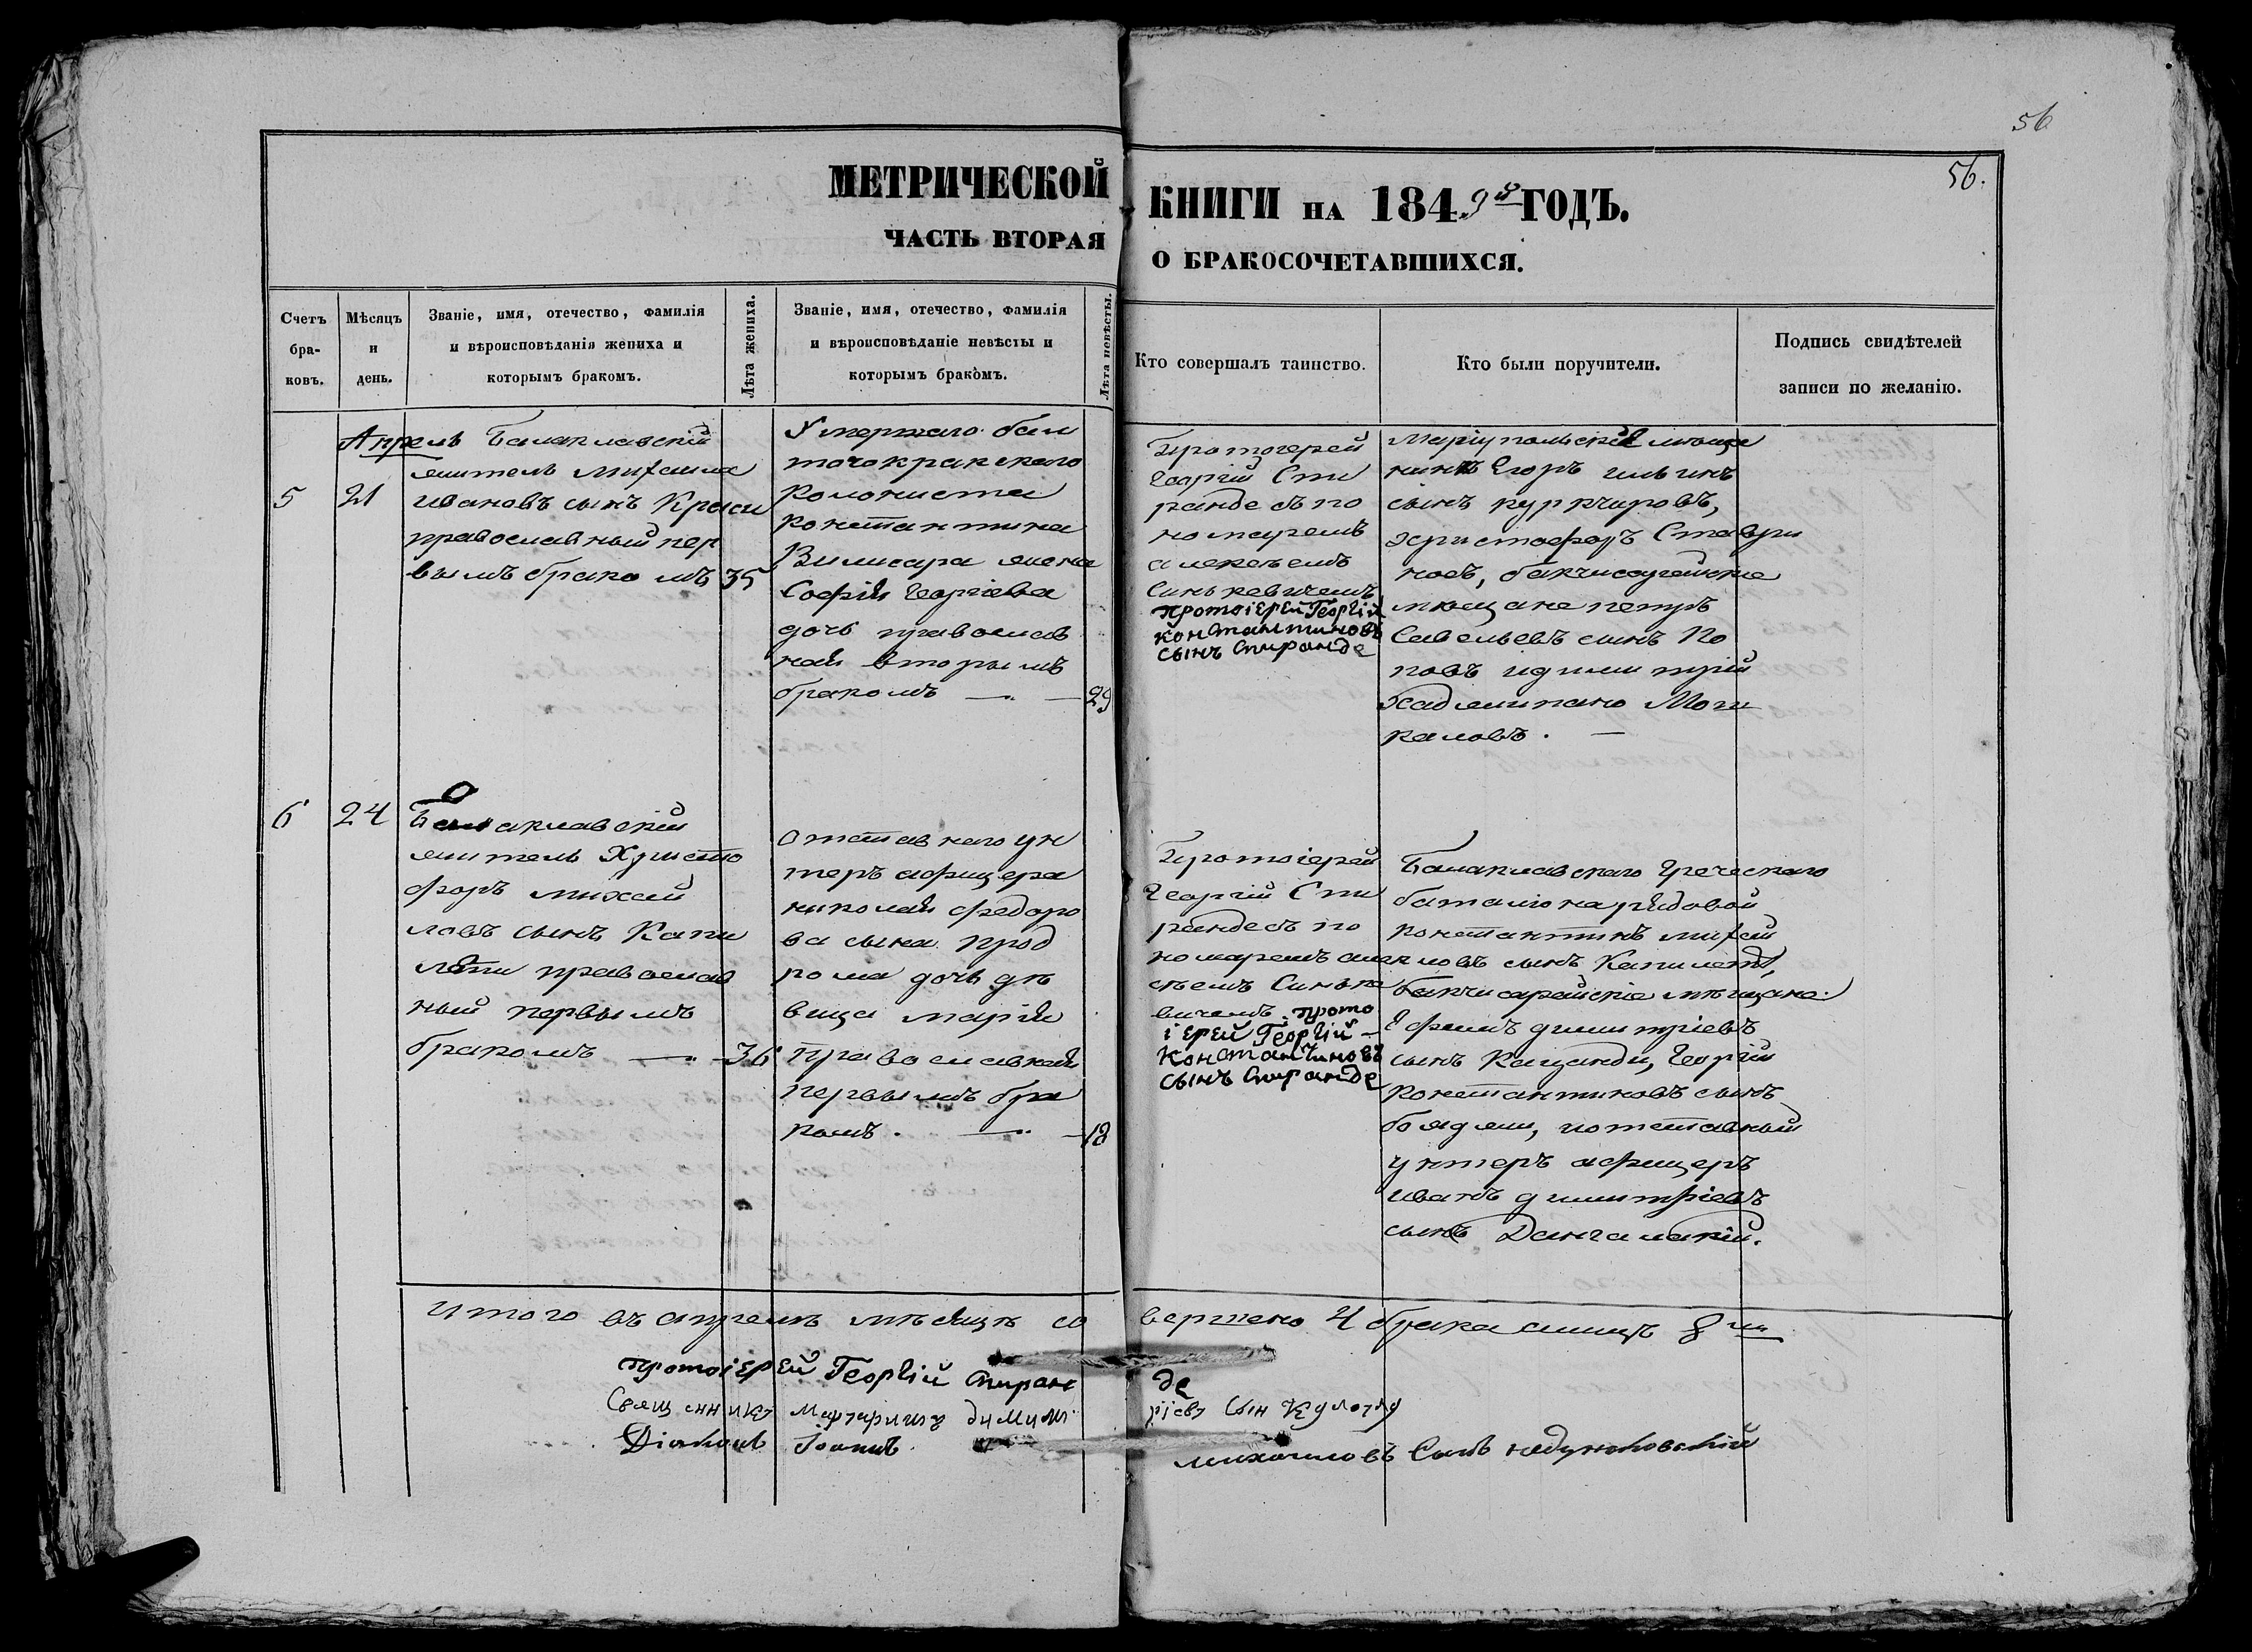 56
56.
МЕТРИЧЕСКОЙ КНИГИ НА 1849й ГОДЪ.
ЧАСТЬ ВТОРАЯ О БРАКОСОЧЕТАВШИХСЯ.
Счетъ бра- ковъ.
Мѣсяцъ и день.
Званіе, имя, отечество, фамилія
и вѣроисповѣданія жениха и
которымъ бракомъ.
Лѣта жениха.
Званіе, имя, отечество, фамилія
и вѣроисповѣданіе невѣсты и
которымъ бракомъ.
Лѣта невѣсты.
Кто совершалъ таинство.
Кто были поручители.
Подпись свидѣтелей
записи по желанію.
5
Апрель
21
Балаклавскій
житель михаила
ивановъ сынъ Криси
православный пер
вымъ бракомъ 35
Умершаго бал
точокракскаго
колониста
константина
Вилисара жена
Софія Георгіева
дочь православ
ная вторымъ
бракомъ — 29
Протоіерей
Георгій Спи
ранде съ по
номаремъ
алексеемъ
Синькевичемъ
протоіерей Георгій
константиновъ
сынъ Спиранде
маріупольскій меща
нинъ Егоръ ильинъ
сынъ куркчировъ,
христофоръ Ставри
новъ, бакчисарайские
мещане петръ
Савельевъ сынъ По
повъ идимитрій
Хаджипано Моги
каловъ. —
6
24
Балаклавскій
житель Христо
форъ михай
ловъ сынъ Капи
лети православ
ный первымъ
бракомъ — 36
отставного ун
теръ афицера
николая федоро
ва сына прод
рома дочь дѣ
вица марія
православная
первымъ бра
комъ. — 18
Протоіерей
Георгій Спи
ранде съ по
номаремъ алек
сѣемъ Синьке
вичемъ. прото
іерей Георгій
Константиновъ
сынъ Спиранде
Балаклавскаго Греческаго
баталіона рядовой
константинъ михай
ловъ сынъ Капилети,
бакчисарайскіе мѣщане
Ефимъ димитріевъ
сынъ Кацанди, Георгій
константиновъ сынъ
бояджи, иотставный
унтеръ афицеръ
иванъ димитріевъ
сынъ Дангалакій.
Итого въ апрелѣ мѣсяцѣ совершено 4 брака лицъ 8мь
протоіерей Георгій Спиранде
Священникъ димитріевъ сын
Діаконъ Іоаннъ михайловъ Сынъ